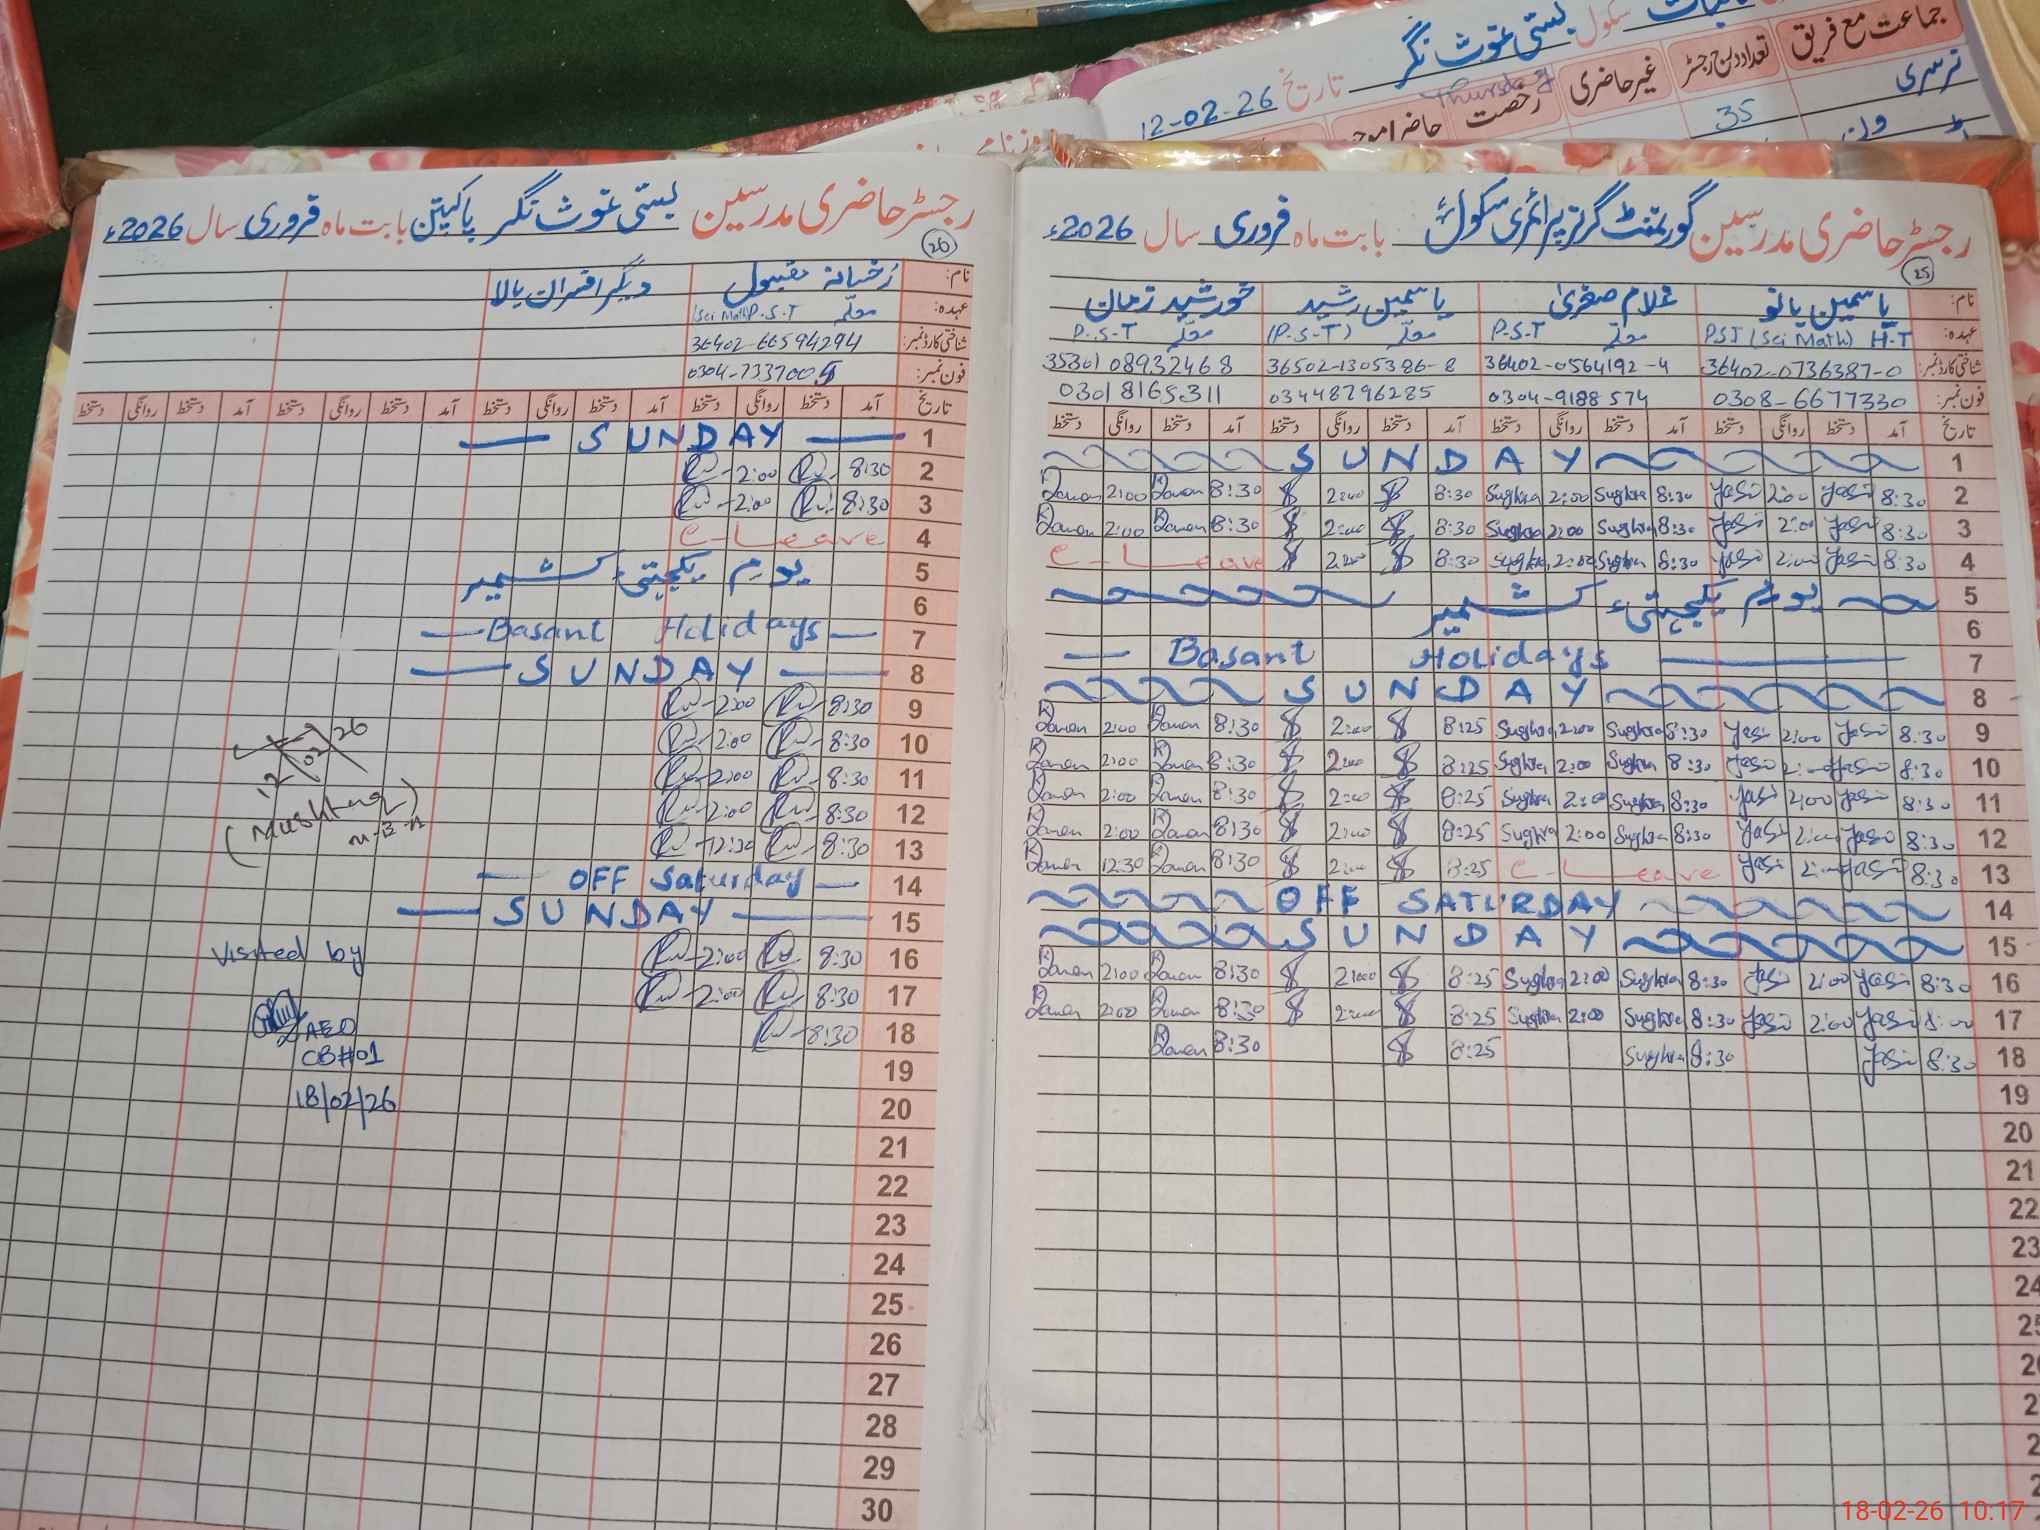 سکول بستی غوث نگر
تاریخ 12-02-26
Thursday
جماعت مع فریق
تعداد درج رجسٹر
غیر حاضری
رخصت
نرسری
35
رجسٹر حاضری مدرسین گورنمنٹ گرلز پرائمری سکول بابت ماہ فروری سال 2026ء
25
نام: یاسمین بانو غلام صغریٰ یاسمین رشید خورشید زمان
عہدہ: H.T PST (Sci Math) معلّمہ P.S.T معلّمہ (P.S.T) معلّمہ P.S.T
شناختی کارڈ نمبر: 36402-0736387-0 36402-0564192-4 36502-1305386-8 35301 0893246 8
فون نمبر: 0308-6677330 0304-9188574 03448796285 0301 8165311
تاریخ آمد دستخط روانگی دستخط آمد دستخط روانگی دستخط آمد دستخط روانگی دستخط آمد دستخط روانگی دستخط
1 SUNDAY
2 8:30 Yasi 2:00 Yasi 8:30 Sughra 2:00 Sughra 8:30 2:00 8:30 Zaman 2:00 Zaman
3 8:30 Yasi 2:00 Yasi 8:30 Sughra 2:00 Sughra 8:30 2:00 8:30 Zaman 2:00 Zaman
4 8:30 Yasi 2:00 Yasi 8:30 Sughra 2:00 Sughra 8:30 2:00 C-Leave
5 یوم یکجہتیء کشمیر
6
7 Basant Holidays
8 SUNDAY
9 8:30 Yasi 2:00 Yasi 8:30 Sughra 2:00 Sughra 8:25 2:00 8:30 Zaman 2:00 Zaman
10 8:30 Yasi 2:00 Yasi 8:30 Sughra 2:00 Sughra 8:25 2:00 8:30 Zaman 2:00 Zaman
11 8:30 Yasi 2:00 Yasi 8:30 Sughra 2:00 Sughra 8:25 2:00 8:30 Zaman 2:00 Zaman
12 8:30 Yasi 2:00 Yasi 8:30 Sughra 2:00 Sughra 8:25 2:00 8:30 Zaman 2:00 Zaman
13 8:30 Yasi 2:00 Yasi C-Leave 8:25 2:00 8:30 Zaman 12:30 Zaman
14 OFF SATURDAY
15 SUNDAY
16 8:30 Yasi 2:00 Yasi 8:30 Sughra 2:00 Sughra 8:25 2:00 8:30 Zaman 2:00 Zaman
17 8:00 Yasi 2:00 Yasi 8:30 Sughra 2:00 Sughra 8:25 2:00 8:30 Zaman 2:00 Zaman
18 8:30 Yasi 8:30 Sughra 8:25 8:30 Zaman
19
20
21
22
23
24
رجسٹر حاضری مدرسین بستی غوث نگر پاکپتن بابت ماہ فروری سال 2026ء
26
نام: رُخسانہ مقبول دیگر افسران بالا
عہدہ: معلّمہ (Sci Math) P.S.T
شناختی کارڈ نمبر: 36402-66594294
فون نمبر: 0304-7337005
تاریخ آمد دستخط روانگی دستخط آمد دستخط روانگی دستخط آمد دستخط روانگی دستخط آمد دستخط روانگی دستخط
1 SUNDAY
2 8:30 2:00
3 8:30 2:00
4 C-Leave
5 یوم یکجہتیء کشمیر
6
7 Basant Holidays
8 SUNDAY
9 8:30 2:00
10 8:30 2:00
11 8:30 2:00
12 8:30 2:00
13 8:30 12:30
14 OFF Saturday
15 SUNDAY
16 8:30 2:00
17 8:30 2:00
18 8:30
19
20
21
22
23
24
25
26
27
28
29
30
12 02 26
(Mushtaq)
Visited by
AEO
CB#01
18/02/26
18-02-26 10:17